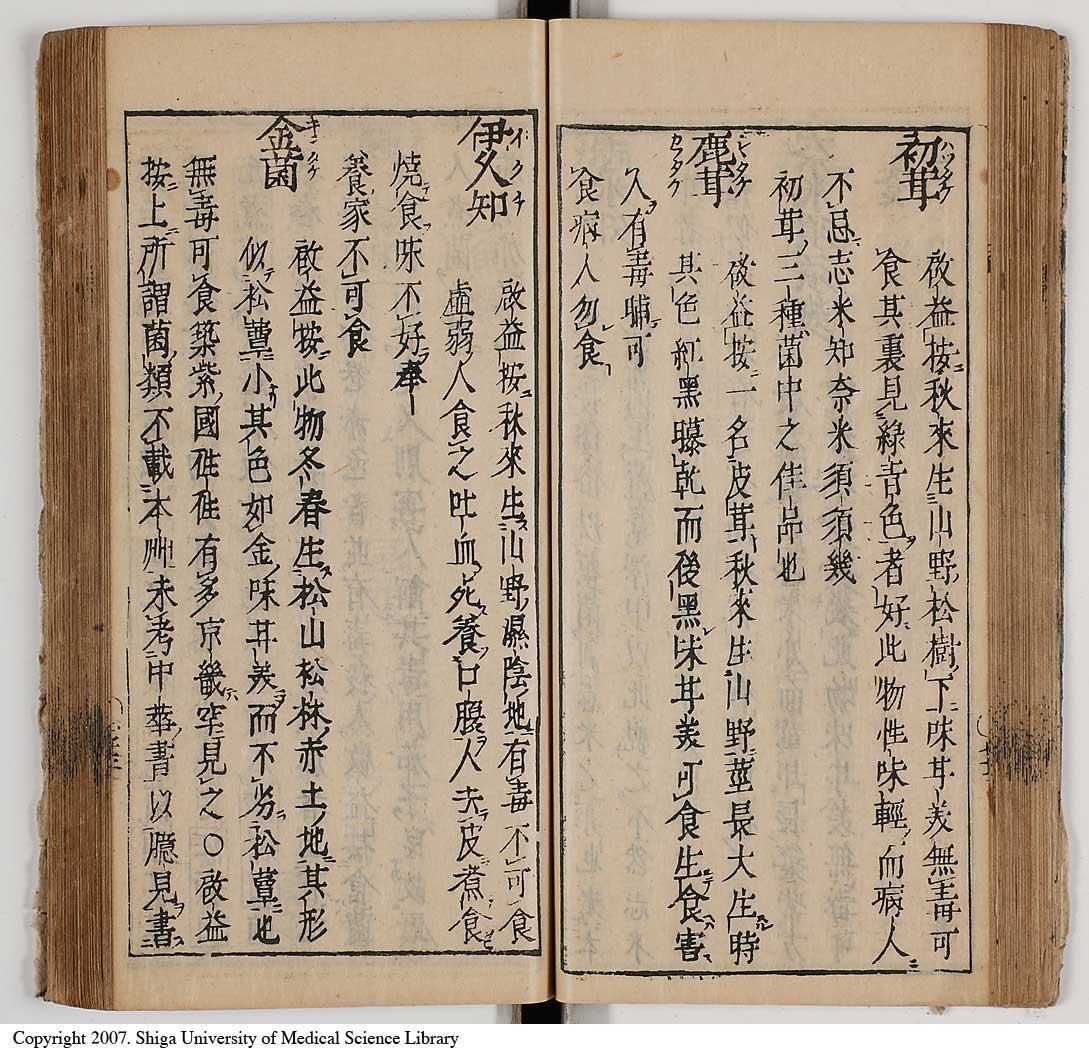 初茸 ハツタケ
啟益按秋來生山野松樹下味甘美無毒可
食其裏見綠青色者好此物性味輕而病人
不忌志米知奈米須須幾
初茸三種菌中之佳品也
鹿茸 シシタケ セウタケ
啟益按一名皮茸秋來生山野莖長大生時
其色紅黑曝乾而後黑味甘美可食生食害
人有毒晡可
食病人勿食
伊久知 イクチ
啟益按秋來生山野濕陰地有毒不可食
虛弱人食之吐血死養口腹人去皮煮食
燒食味不好奉
養家不可食
金菌 キンタケ
啟益按此物冬春生松山松林赤土地其形
似松蕈小其色如金味甘美而不劣松蕈也
無毒可食築紫國徃徃有多京畿罕見之○啟益
按上所謂菌類不載本州未考中華書以臆見書
Copyright 2007. Shiga University of Medical Science Library